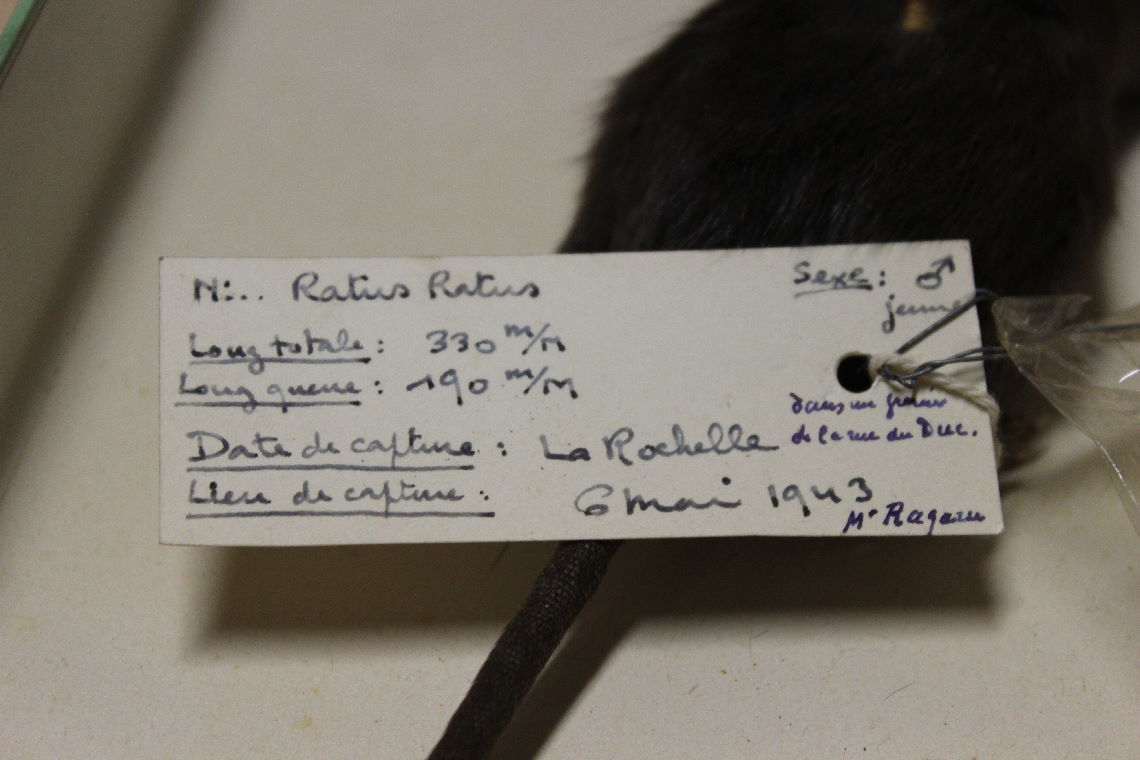 N:.. Ratus Ratus
Sexe : ♂
jeune
Long totale : 330 m/m
Long queue : 190 m/m
dans un
de la rue du Duc.
Date de capture : La Rochelle
Lieu de capture : 6 mai 1943
Mr